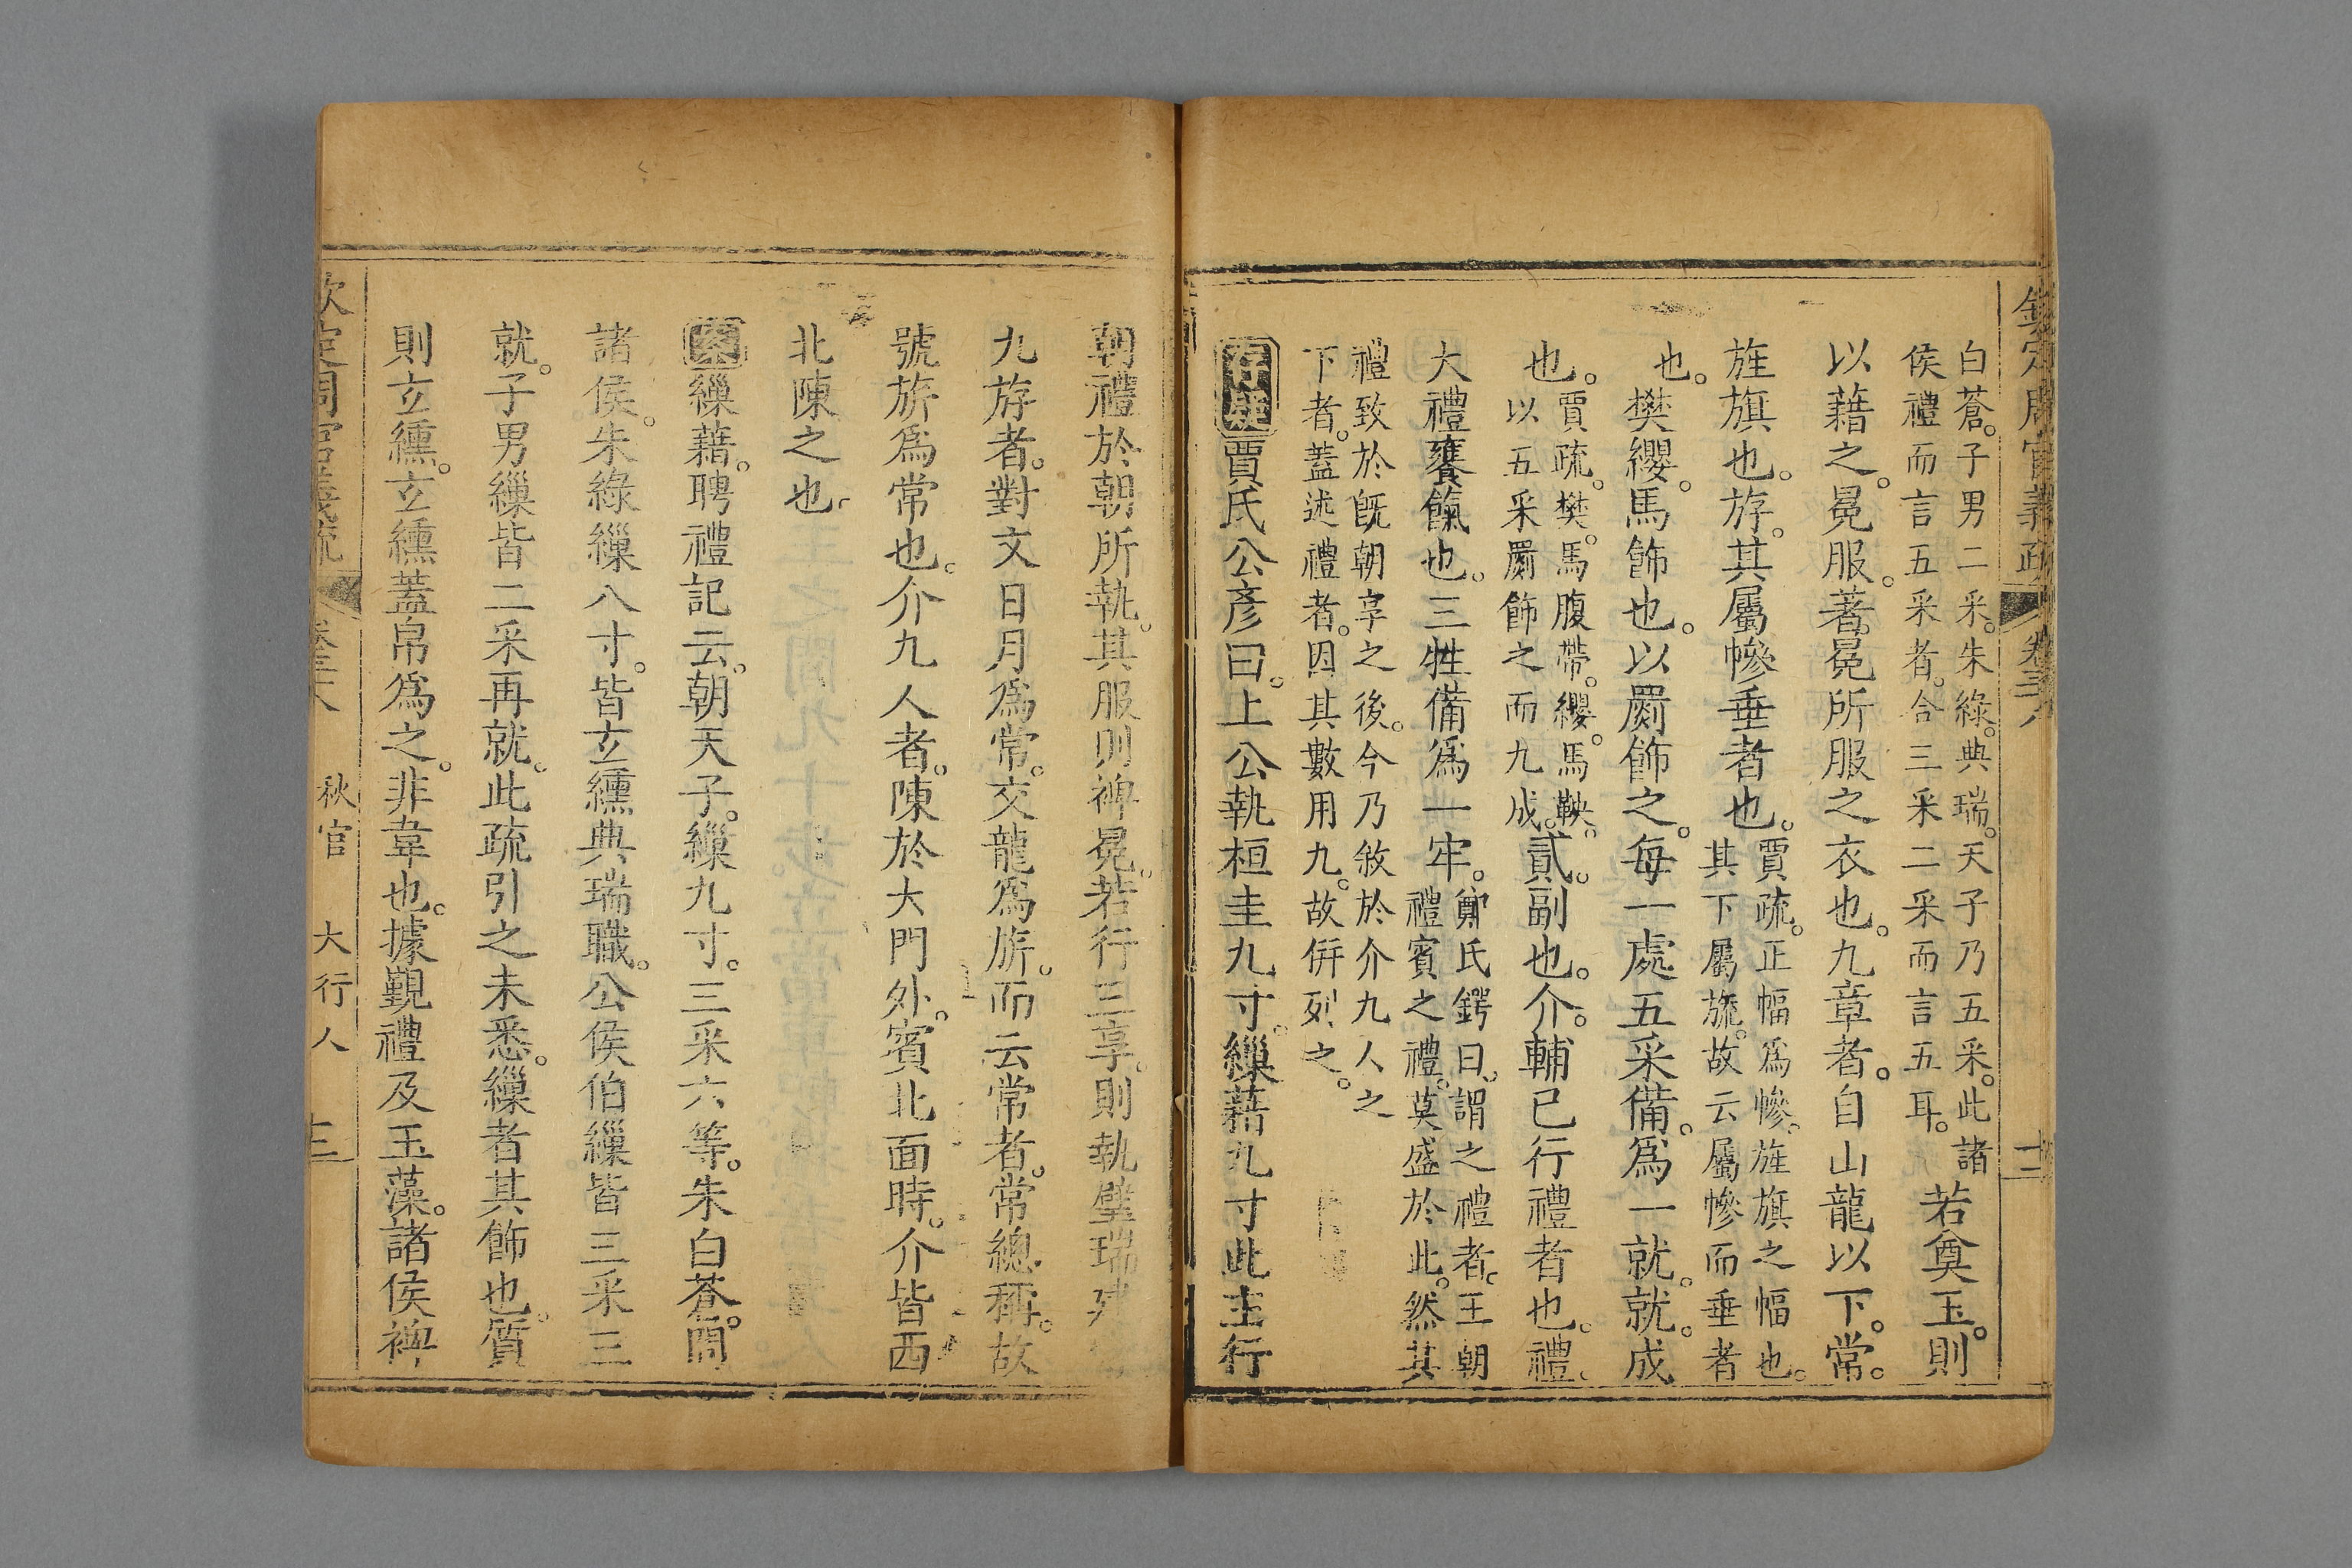 欽定周官義疏
卷三十八
十二
白蒼。子男二采。朱綠。典瑞。天子乃五采。此諸
侯禮而言五采者。合三采二采而言五耳。
若奠玉。則
以藉之。冕服。著冕所服之衣也。九章者。自山龍以下。常。
旌旗也。斿。其屬幓垂者也。
賈疏。正幅為幓。旌旗之幅也。
其下屬旒。故云屬幓而垂者
也。
樊纓。馬飾也。以罽飾之。每一處五采備。為一就。就。成
也。
賈疏。樊。馬腹帶。纓。馬鞅。
以五采罽飾之而九成。
貳。副也。介。輔已行禮者也。禮。
大禮饔餼也。三牲備為一牢。
鄭氏鍔曰。謂之禮者。王朝
禮賓之禮。莫盛於此。然其
禮致於旣朝享之後。今乃敘於介九人之
下者。蓋述禮者。因其數用九。故倂列之。
存疑
賈氏公彥曰。上公執桓圭九寸。繅藉九寸此主行
朝禮於朝所執。其服則裨冕。若行三享。則執璧瑞建
九斿者。對文日月為常。交龍為旂。而云常者。常總稱。故
號旂為常也。介九人者。陳於大門外。賓北面時。介皆西
北陳之也。
案
繅藉。聘禮記云。朝天子。繅九寸。三采六等。朱白蒼。問
諸侯。朱綠繅八寸。皆玄纁典瑞職。公侯伯繅皆三采三
就。子男繅皆二采再就。此疏引之未悉。繅者其飾也。質
則玄纁。玄纁蓋帛為之。非韋也。據覲禮及玉藻。諸侯裨
欽定周官義疏
卷三十八
秋官
大行人
十三